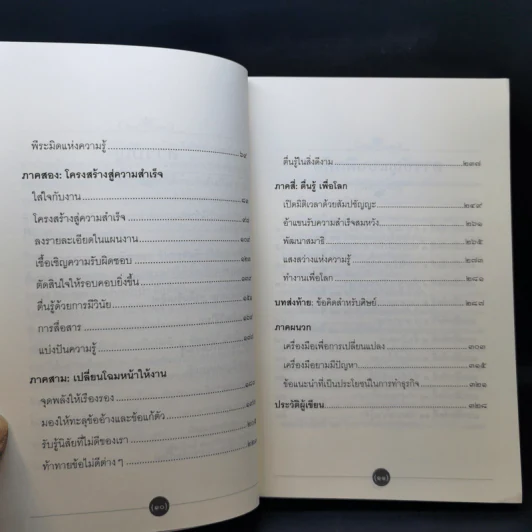 พีระมิดแห่งความรู้
ภาคสอง: โครงสร้างสู่ความสำเร็จ
ใส่ใจกับงาน
โครงสร้างสู่ความสำเร็จ
ลงรายละเอียดในแผนงาน
เชื้อเชิญความรับผิดชอบ
ตัดสินใจให้รอบคอบยิ่งขึ้น
ตื่นรู้ด้วยการมีวินัย
การสื่อสาร
แบ่งปันความรู้
ภาคสาม: เปลี่ยนโฉมหน้าให้งาน
จุดพลังให้เรืองรอง
มองให้ทะลุข้ออ้างและข้อแก้ตัว
รับรู้นิสัยที่ไม่ดีของเรา
ท้าทายข้อไม่ดีต่าง ๆ
(๑๐)
ตื่นรู้ในสิ่งดีงาม ๒๓๗
ภาคสี่: ตื่นรู้ เพื่อโลก
เปิดมิติเวลาด้วยสัมปชัญญะ ๒๔๙
อ้าแขนรับความสำเร็จสมหวัง ๒๖๑
พัฒนาสมาธิ ๒๖๕
แสงสว่างแห่งความรู้ ๒๗๓
ทำงานเพื่อโลก ๒๘๑
บทส่งท้าย: ข้อคิดสำหรับศิษย์ ๒๘๗
ภาคผนวก
เครื่องมือเพื่อการเปลี่ยนแปลง ๓๐๑
เครื่องมือยามมีปัญหา ๓๑๕
ข้อแนะนำที่เป็นประโยชน์ในการทำธุรกิจ ๓๒๑
ประวัติผู้เขียน ๓๒๘
(๑๑)